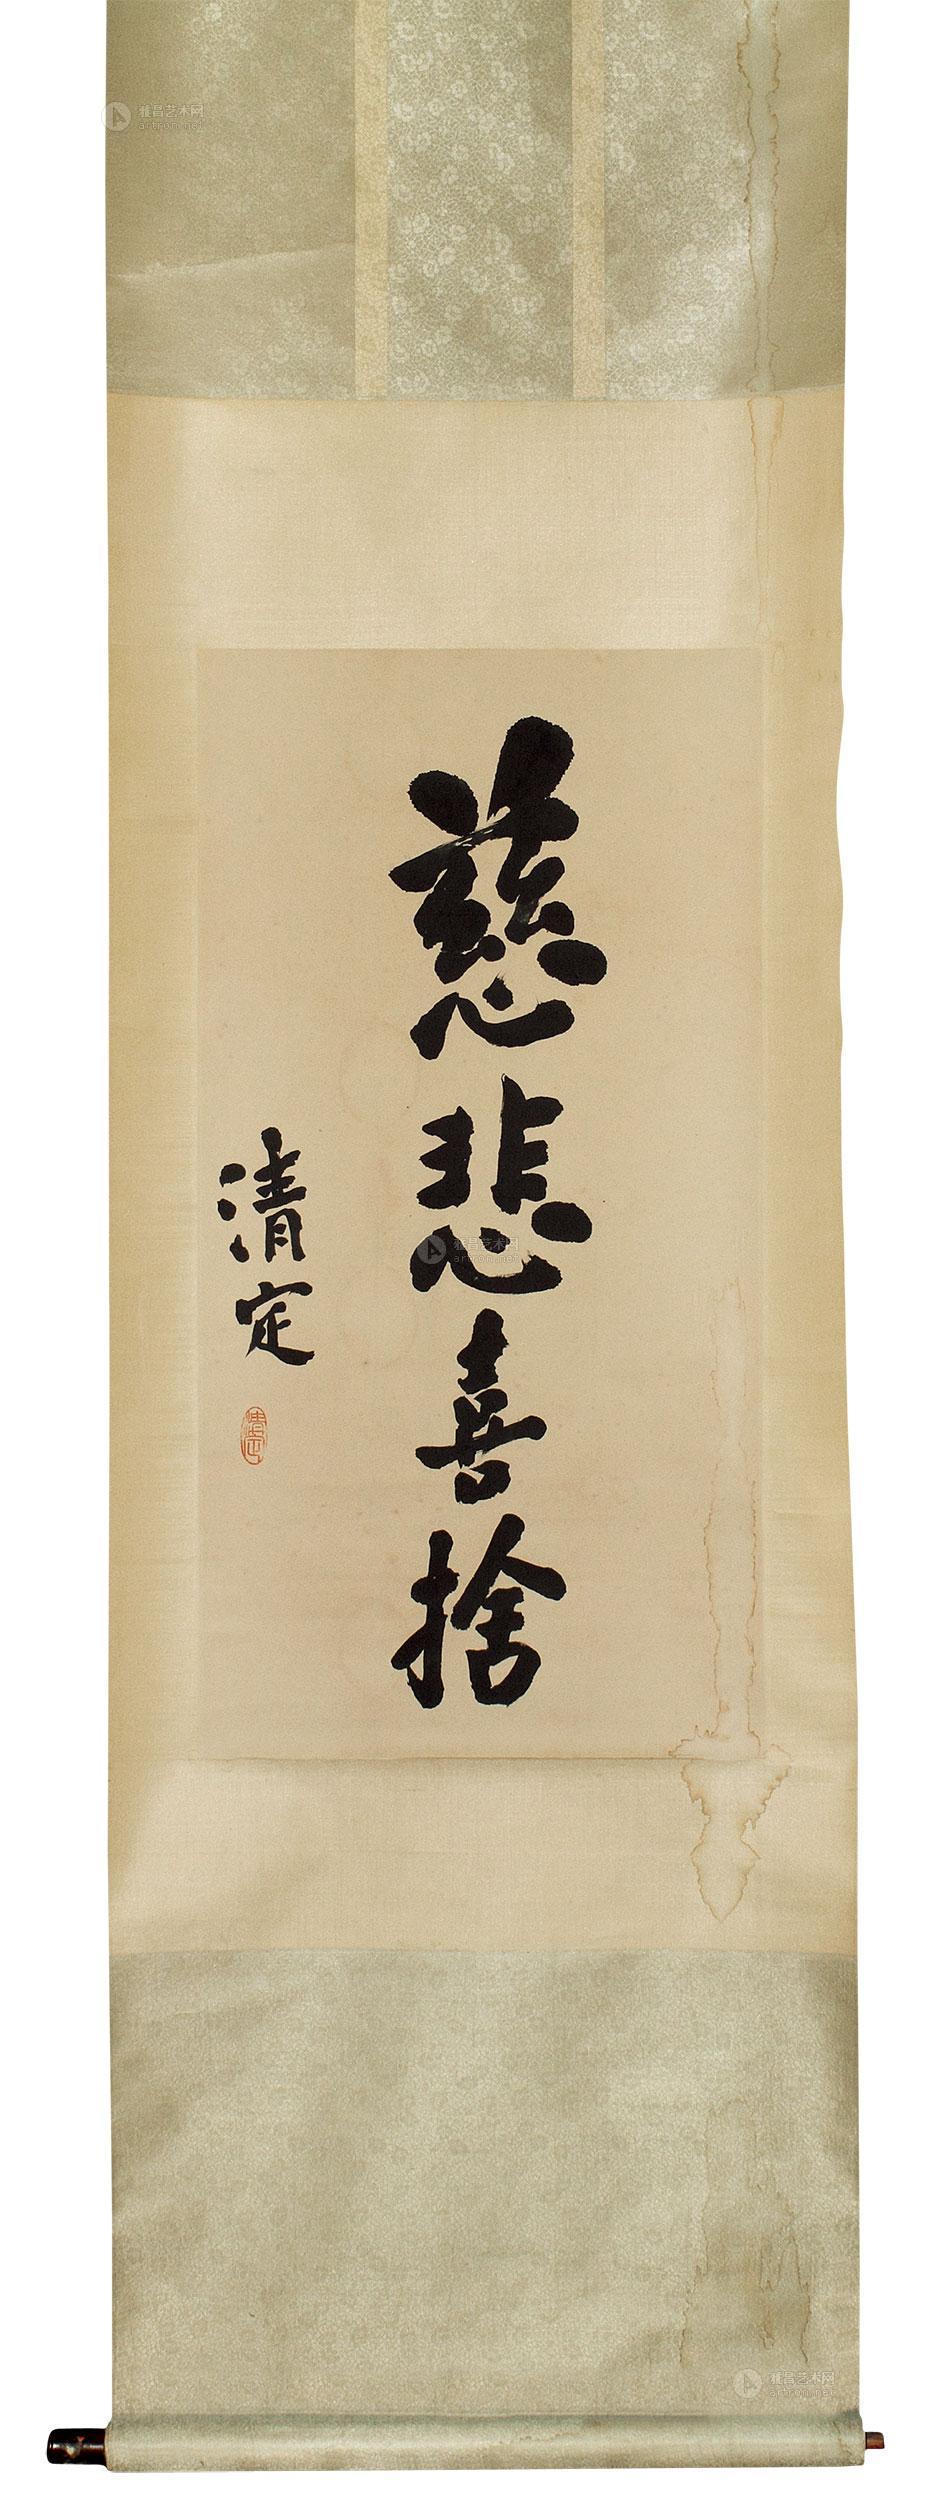 慈悲喜捨
清定
雅昌艺术网
artron.net
雅昌艺术网
artron.net
雅昌艺术网
artron.net